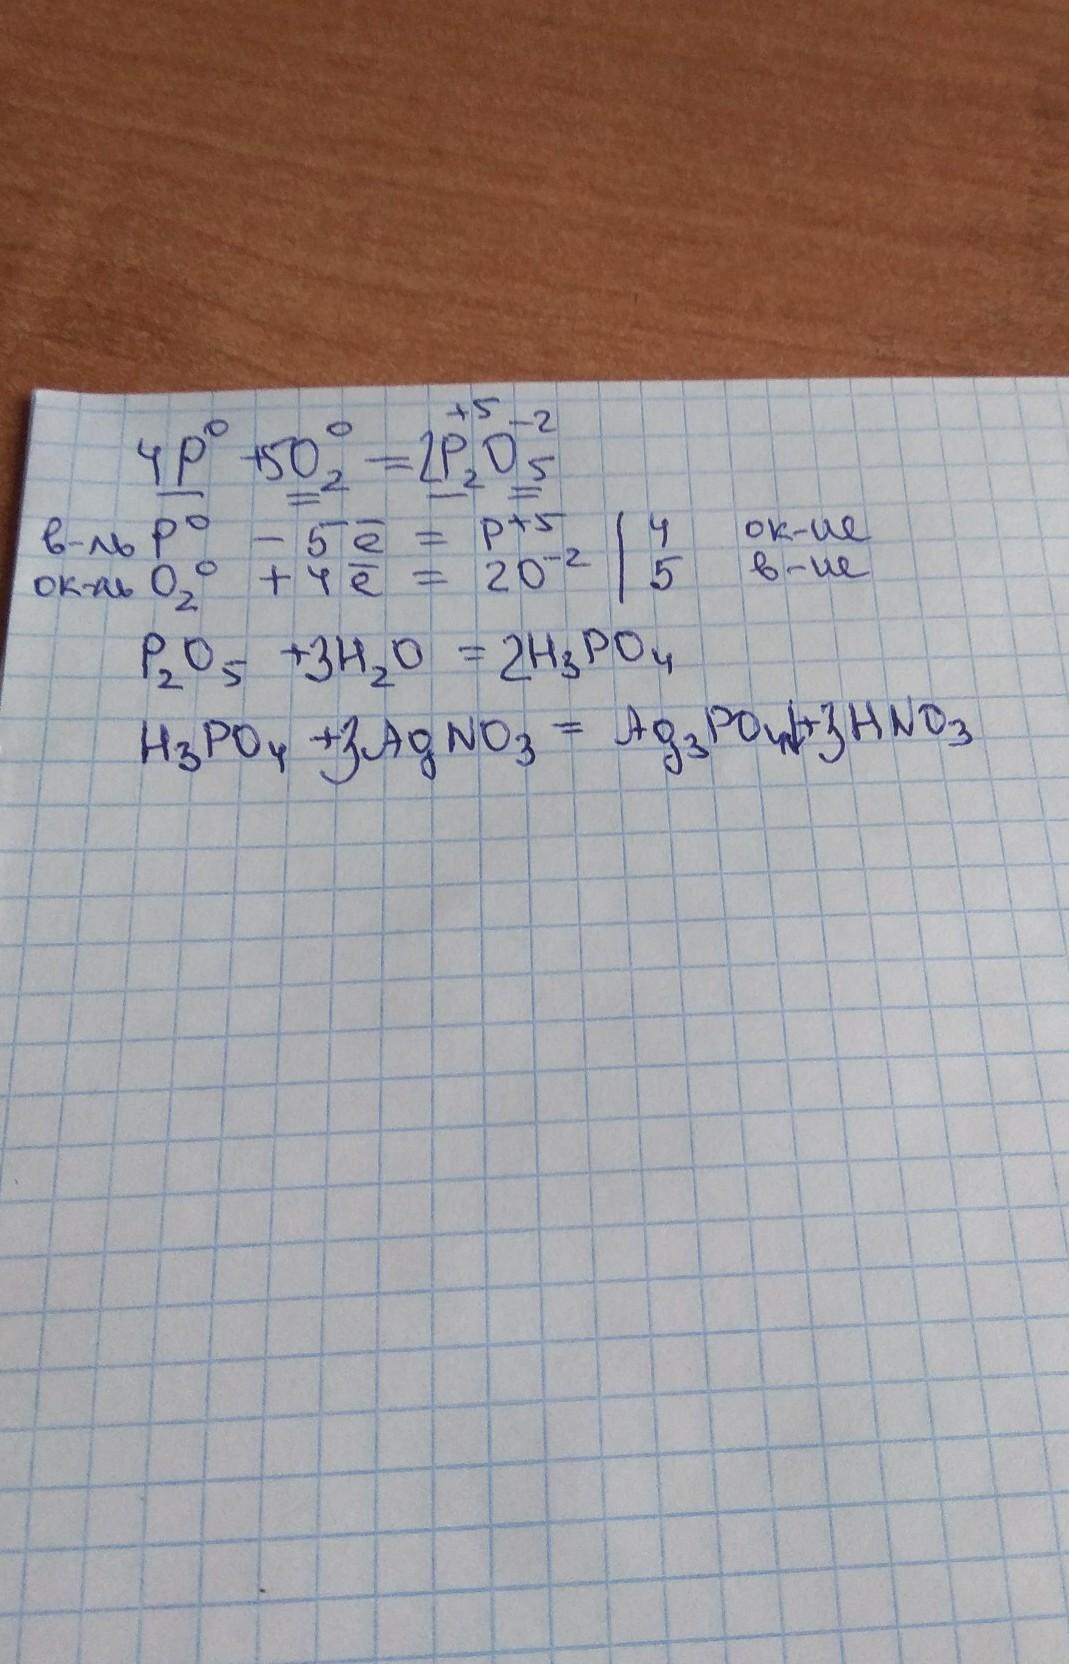 4P⁰ + 5O₂⁰ = 2P₂⁺⁵O₅⁻²
в-ль P⁰ - 5ē = P⁺⁵ | 4 ок-ие
ок-ль O₂⁰ + 4ē = 2O⁻² | 5 в-ие
P₂O₅ + 3H₂O = 2H₃PO₄
H₃PO₄ + 3AgNO₃ = Ag₃PO₄↓ + 3HNO₃